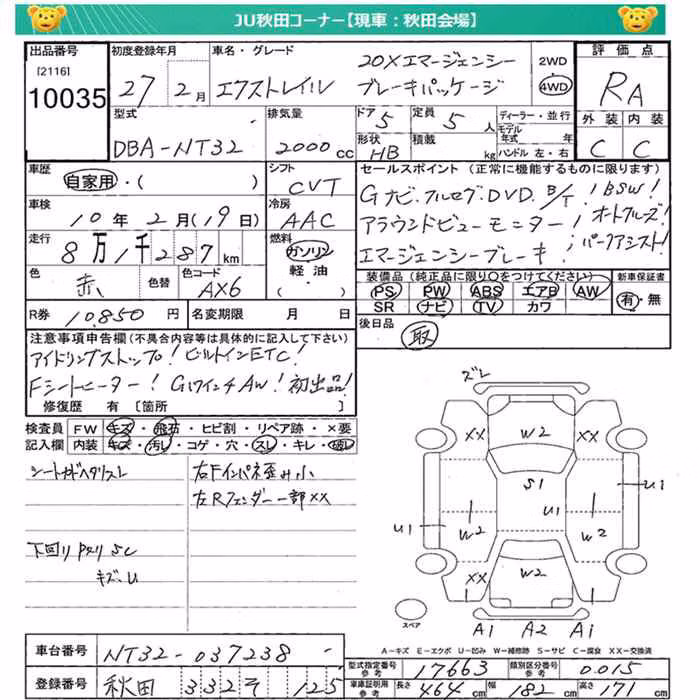 JU秋田コーナー【現車：秋田会場】
出品番号
[2116]
10035
初度登録年月
27 2月
車名・グレード
エクストレイル
20Xエマージェンシー
ブレーキパッケージ
2WD
4WD
評価点
RA
外装 内装
C C
型式
DBA-NT32
排気量
2000cc
ドア 5
定員 5人
形状 HB
積載 kg
ディーラー・並行
モデル年式 年式
ハンドル 左・右
車歴
自家用・( )
シフト
CVT
車検
10年2月(19日)
冷房
AAC
走行
8万1千287km
燃料
ガソリン
軽油
( )
色
赤
色替
色コード
AX6
R券 10,850円
名変期限 月 日
セールスポイント (正常に機能するものに限ります)
Gナビ.フルセグDVD.B/T!BSW!
アラウンドビューモニター!オートクルーズ!
エマージェンシーブレーキ!パークアシスト!
装備品(純正品に限り○をつけてください)
PS PW ABS エアB AW
SR ナビ TV カワ
新車保証書
有・無
後日品
取
注意事項申告欄(不具合内容等は具体的に記入して下さい)
アイドリングストップ!ビルトインETC!
Fシートヒーター!G17インチAW!初出品!
修復歴 有 [箇所
検査員記入欄
FW キズ・飛石・ヒビ割・リペア跡・×要
内装 キズ・汚レ・コゲ・穴・スレ・キレ・破レ
シートカドヘタリスレ
下回りPメリSC
キズ.U
右Fインパネ歪み小
左Rフェンダー一部××
ズレ
XX W2 XX
S1
U1 U1 U1
W2 W2
XX W2
A1 A2 A1
スペア
A－キズ E－エクボ U－凹み W－補修跡 S－サビ C－腐食 XX－交換済
車台番号 NT32-037238
登録番号 秋田 332 そ 125
型式指定番号 参考 17663
類別区分番号 参考 0015
車庫証明用 参考 長さ 464cm 幅 182cm 高さ 171cm